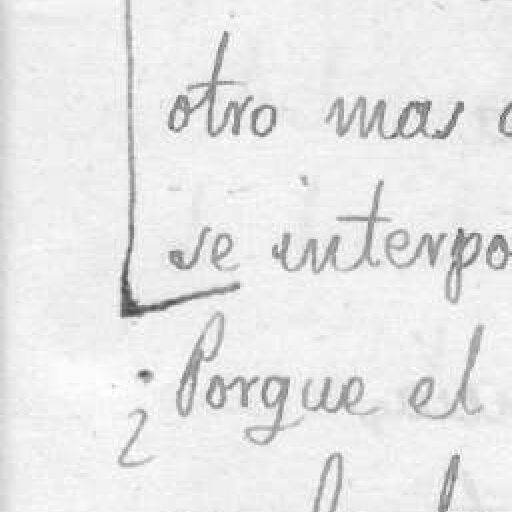 otro mas
se interpo
¿Porque el